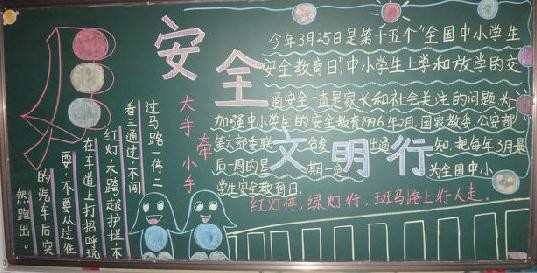 安全
今年3月25日是第十五个"全国中小学生
安全教育日!中小学生上学和放学的交
通安全一直是家长和社会关注的问题为
加强中小学生的安全教育1996年2月,国家教委、公安部
知,把每年3月最
后一周的星期一
为全国中小
学生安全教育日.
文明行
红灯停,绿灯行,斑马路上行人走。
大手牵小手
过马路一停二
看三通过,不闯
红灯,不跨越护栏,不
在车道上打招呼玩
耍,不要从过往
的汽车后突
然跑出。